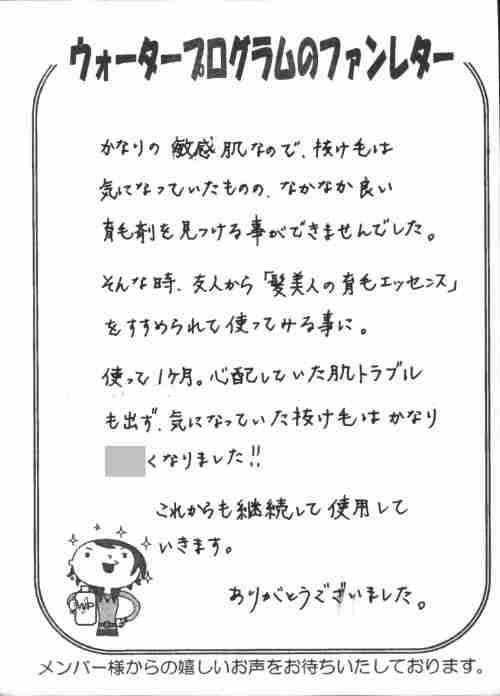 ウォータープログラムのファンレター
かなりの敏感肌なので、抜け毛は
気になっていたものの、なかなか良い
育毛剤を見つける事ができませんでした。
そんな時、友人から「髪美人の育毛エッセンス」
をすすめられて使ってみる事に。
使って1ヶ月。心配していた肌トラブル
も出ず、気になっていた抜け毛はかなり
くなりました!!
これからも継続して使用して
いきます。
ありがとうございました。
Wp
メンバー様からの嬉しいお声をお待ちいたしております。